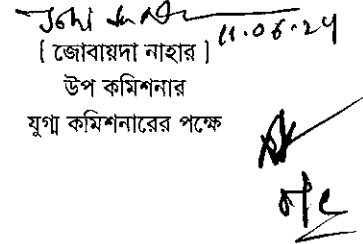 11.06.24
[ জোবায়দা নাহার ]
উপ কমিশনার
যুগ্ম কমিশনারের পক্ষে